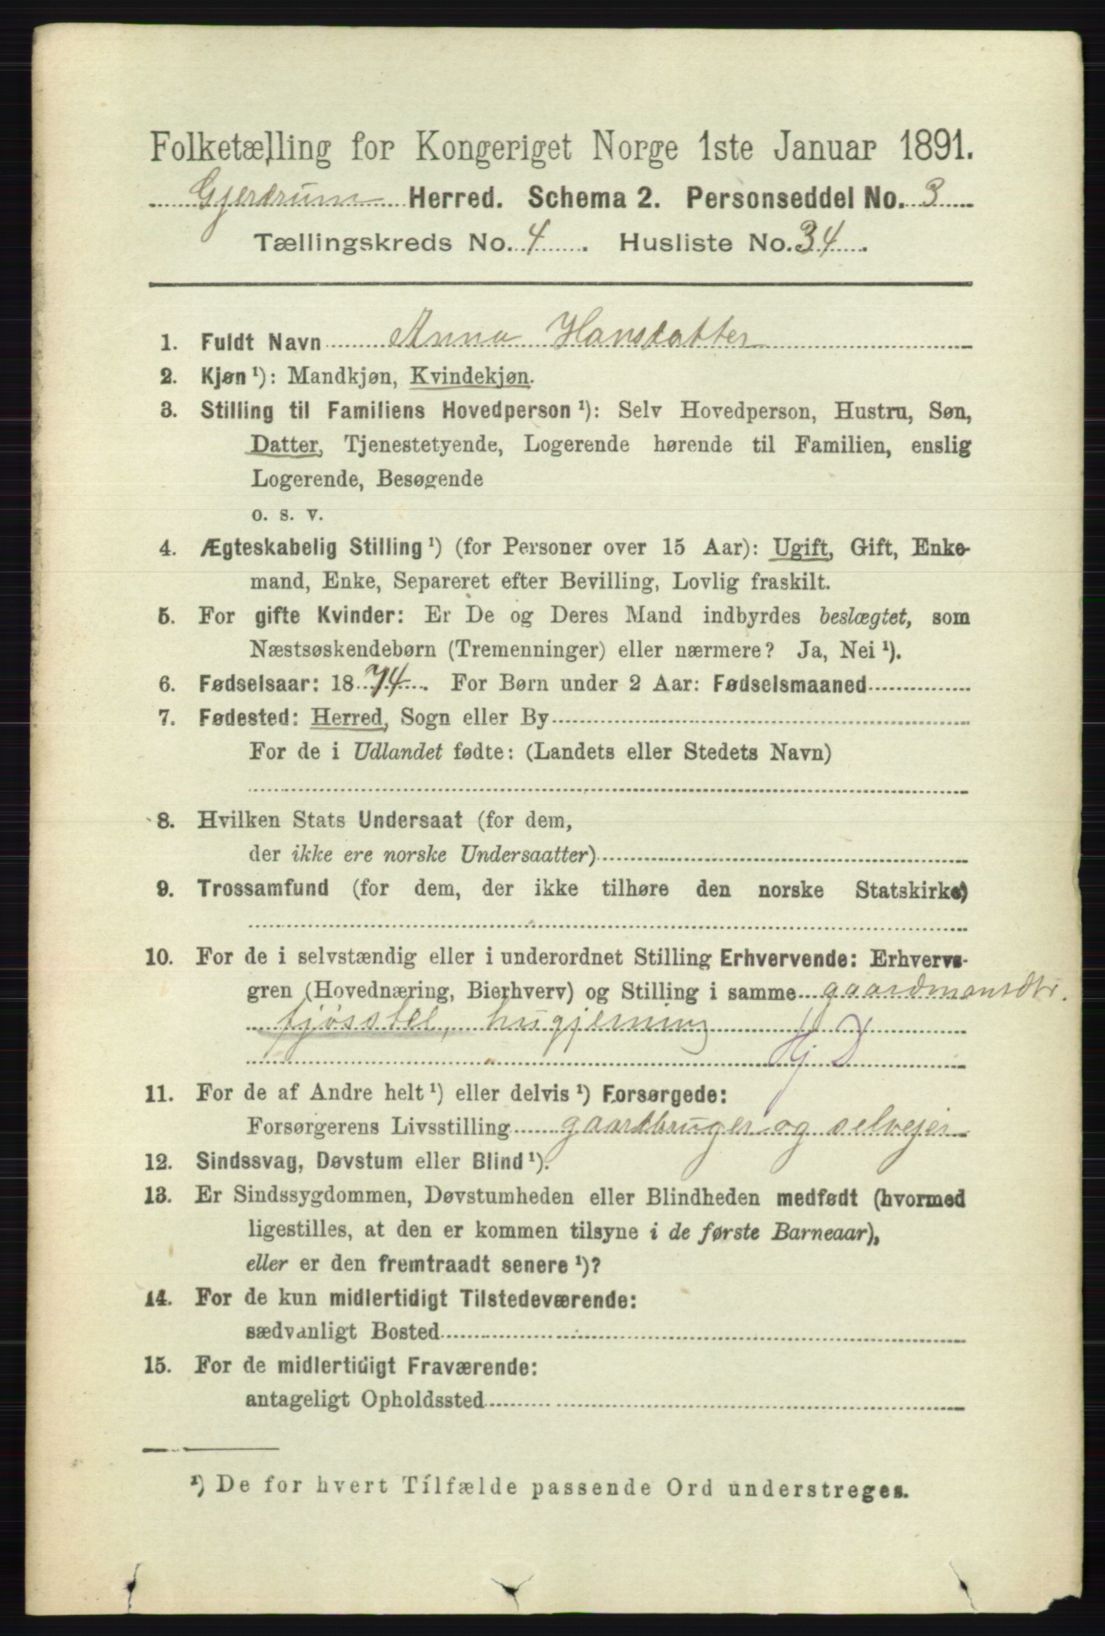 Folketælling for Kongeriget Norge 1ste Januar 1891.
Gjerdrum Herred. Schema 2. Personseddel No. 3
Tællingskreds No. 4. Husliste No. 34.
1. Fuldt Navn Anna Hansdatter
2. Kjøn ¹): Mandkjøn, Kvindekjøn.
3. Stilling til Familiens Hovedperson ¹): Selv Hovedperson, Hustru, Søn,
Datter, Tjenestetyende, Logerende hørende til Familien, enslig
Logerende, Besøgende
o. s. v.
4. Ægteskabelig Stilling ¹) (for Personer over 15 Aar): Ugift, Gift, Enke-
mand, Enke, Separeret efter Bevilling, Lovlig fraskilt.
5. For gifte Kvinder: Er De og Deres Mand indbyrdes beslægtet, som
Næstsøskendebørn (Tremenninger) eller nærmere? Ja, Nei ¹).
6. Fødselsaar: 1874. For Børn under 2 Aar: Fødselsmaaned
7. Fødested: Herred, Sogn eller By
For de i Udlandet fødte: (Landets eller Stedets Navn)
8. Hvilken Stats Undersaat (for dem,
der ikke ere norske Undersaatter)
9. Trossamfund (for dem, der ikke tilhøre den norske Statskirke)
10. For de i selvstændig eller i underordnet Stilling Erhvervende: Erhvervs-
gren (Hovednæring, Bierhverv) og Stilling i samme gaardmansdtr.
fjösstel, husgjerning
Hj D
11. For de af Andre helt ¹) eller delvis ¹) Forsørgede:
Forsørgerens Livsstilling gaardbruger og selvejer
12. Sindssvag, Døvstum eller Blind ¹).
13. Er Sindssygdommen, Døvstumheden eller Blindheden medfødt (hvormed
ligestilles, at den er kommen tilsyne i de første Barneaar),
eller er den fremtraadt senere ¹)?
14. For de kun midlertidigt Tilstedeværende:
sædvanligt Bosted
15. For de midlertidigt Fraværende:
antageligt Opholdssted
¹) De for hvert Tilfælde passende Ord understreges.